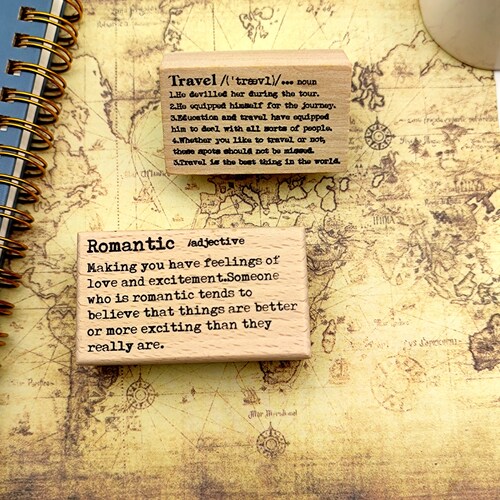 Travel /('trævl)/... noun
1.He devilled her during the tour.
2.He equipped himself for the journey.
3.Education and travel have equipped
him to deel with all sorts of people.
4.Whether you like to travel or not,
these spots should not be missed.
5.Travel is the best thing in the world.
Romantic /adjective
Making you have feelings of
love and excitement.Someone
who is romantic tends to
believe that things are better
or more exciting than they
really are.